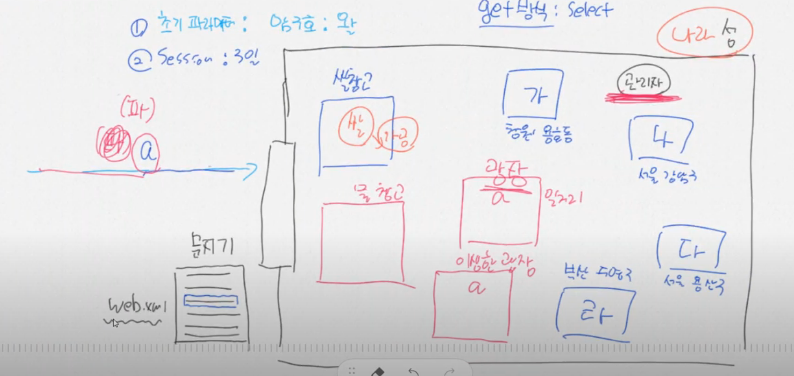 ① 초기 파라메터 : 암구호 : 왕
get방식 : Select
② Session : 3일
나라 성
쌀창고
쌀
가공
가
창원 용호동
관리자
나
서울 강남구
(파)
a
물 창고
광장
a
일주리
문지기
web.xml
이상한 광장
a
부산 수영구
라
다
서울 용산구